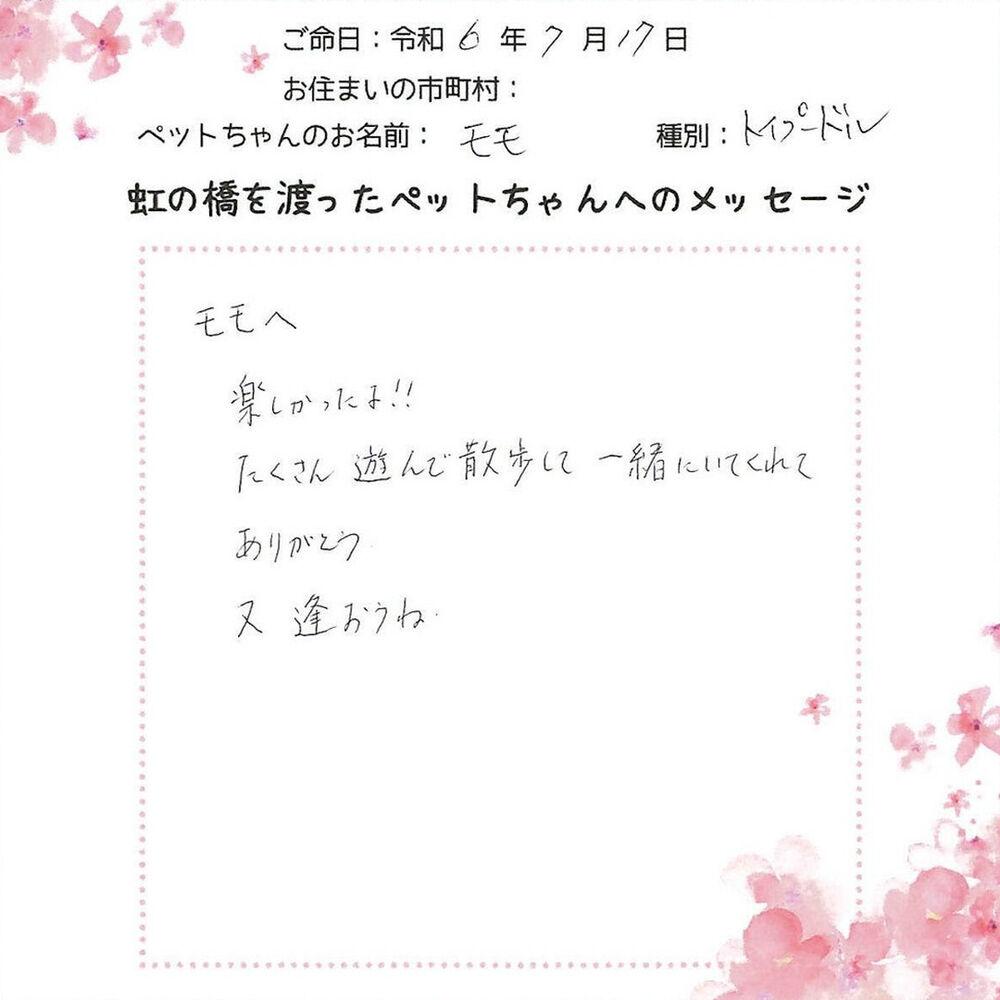 ご命日：令和 6 年 7 月 17 日
お住まいの市町村：
ペットちゃんのお名前： モモ 種別：トイプードル
虹の橋を渡ったペットちゃんへのメッセージ
モモへ
楽しかったよ!!
たくさん 遊んで散歩して 一緒にいてくれて
ありがとう
又 逢おうね.